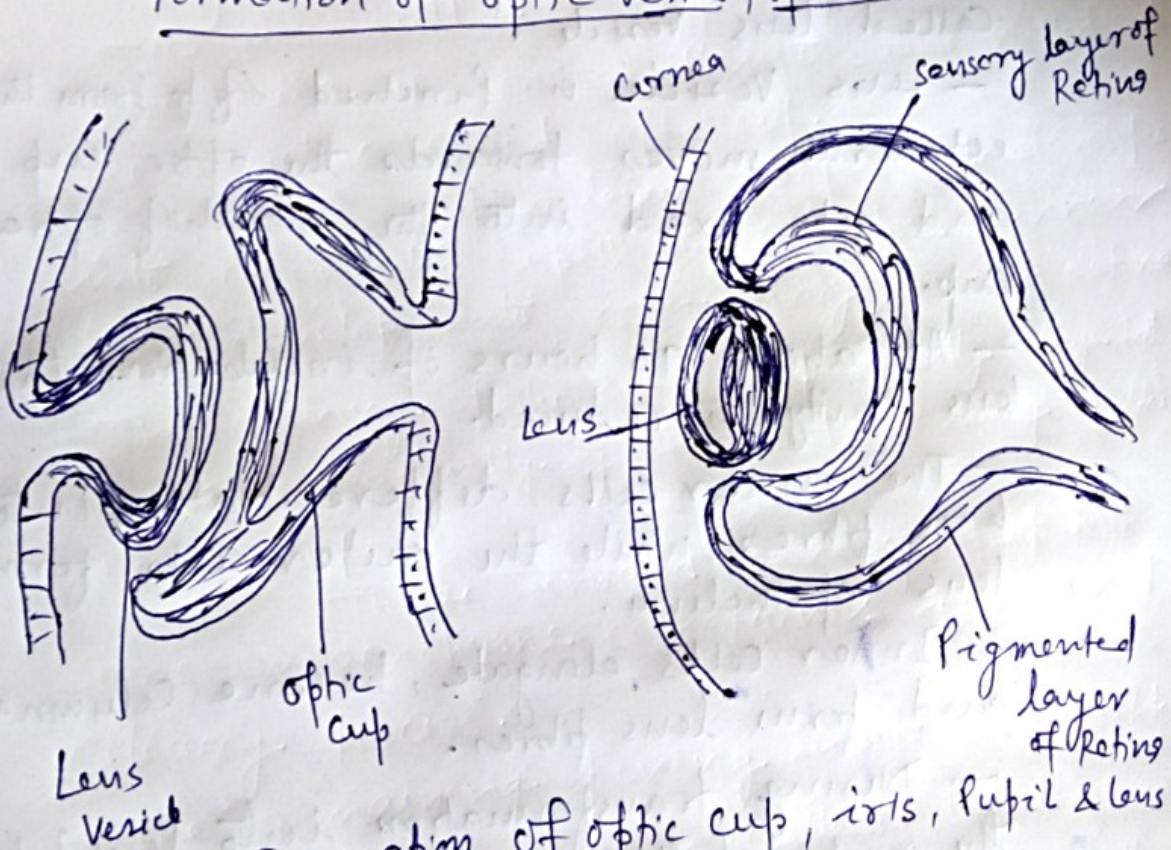 formation of optic
Cornea
sensory layer of
Retina
Lens
optic
cup
Pigmented
layer
of Retina
Lens
Vesicle
of optic cup, iris, Pupil & lens